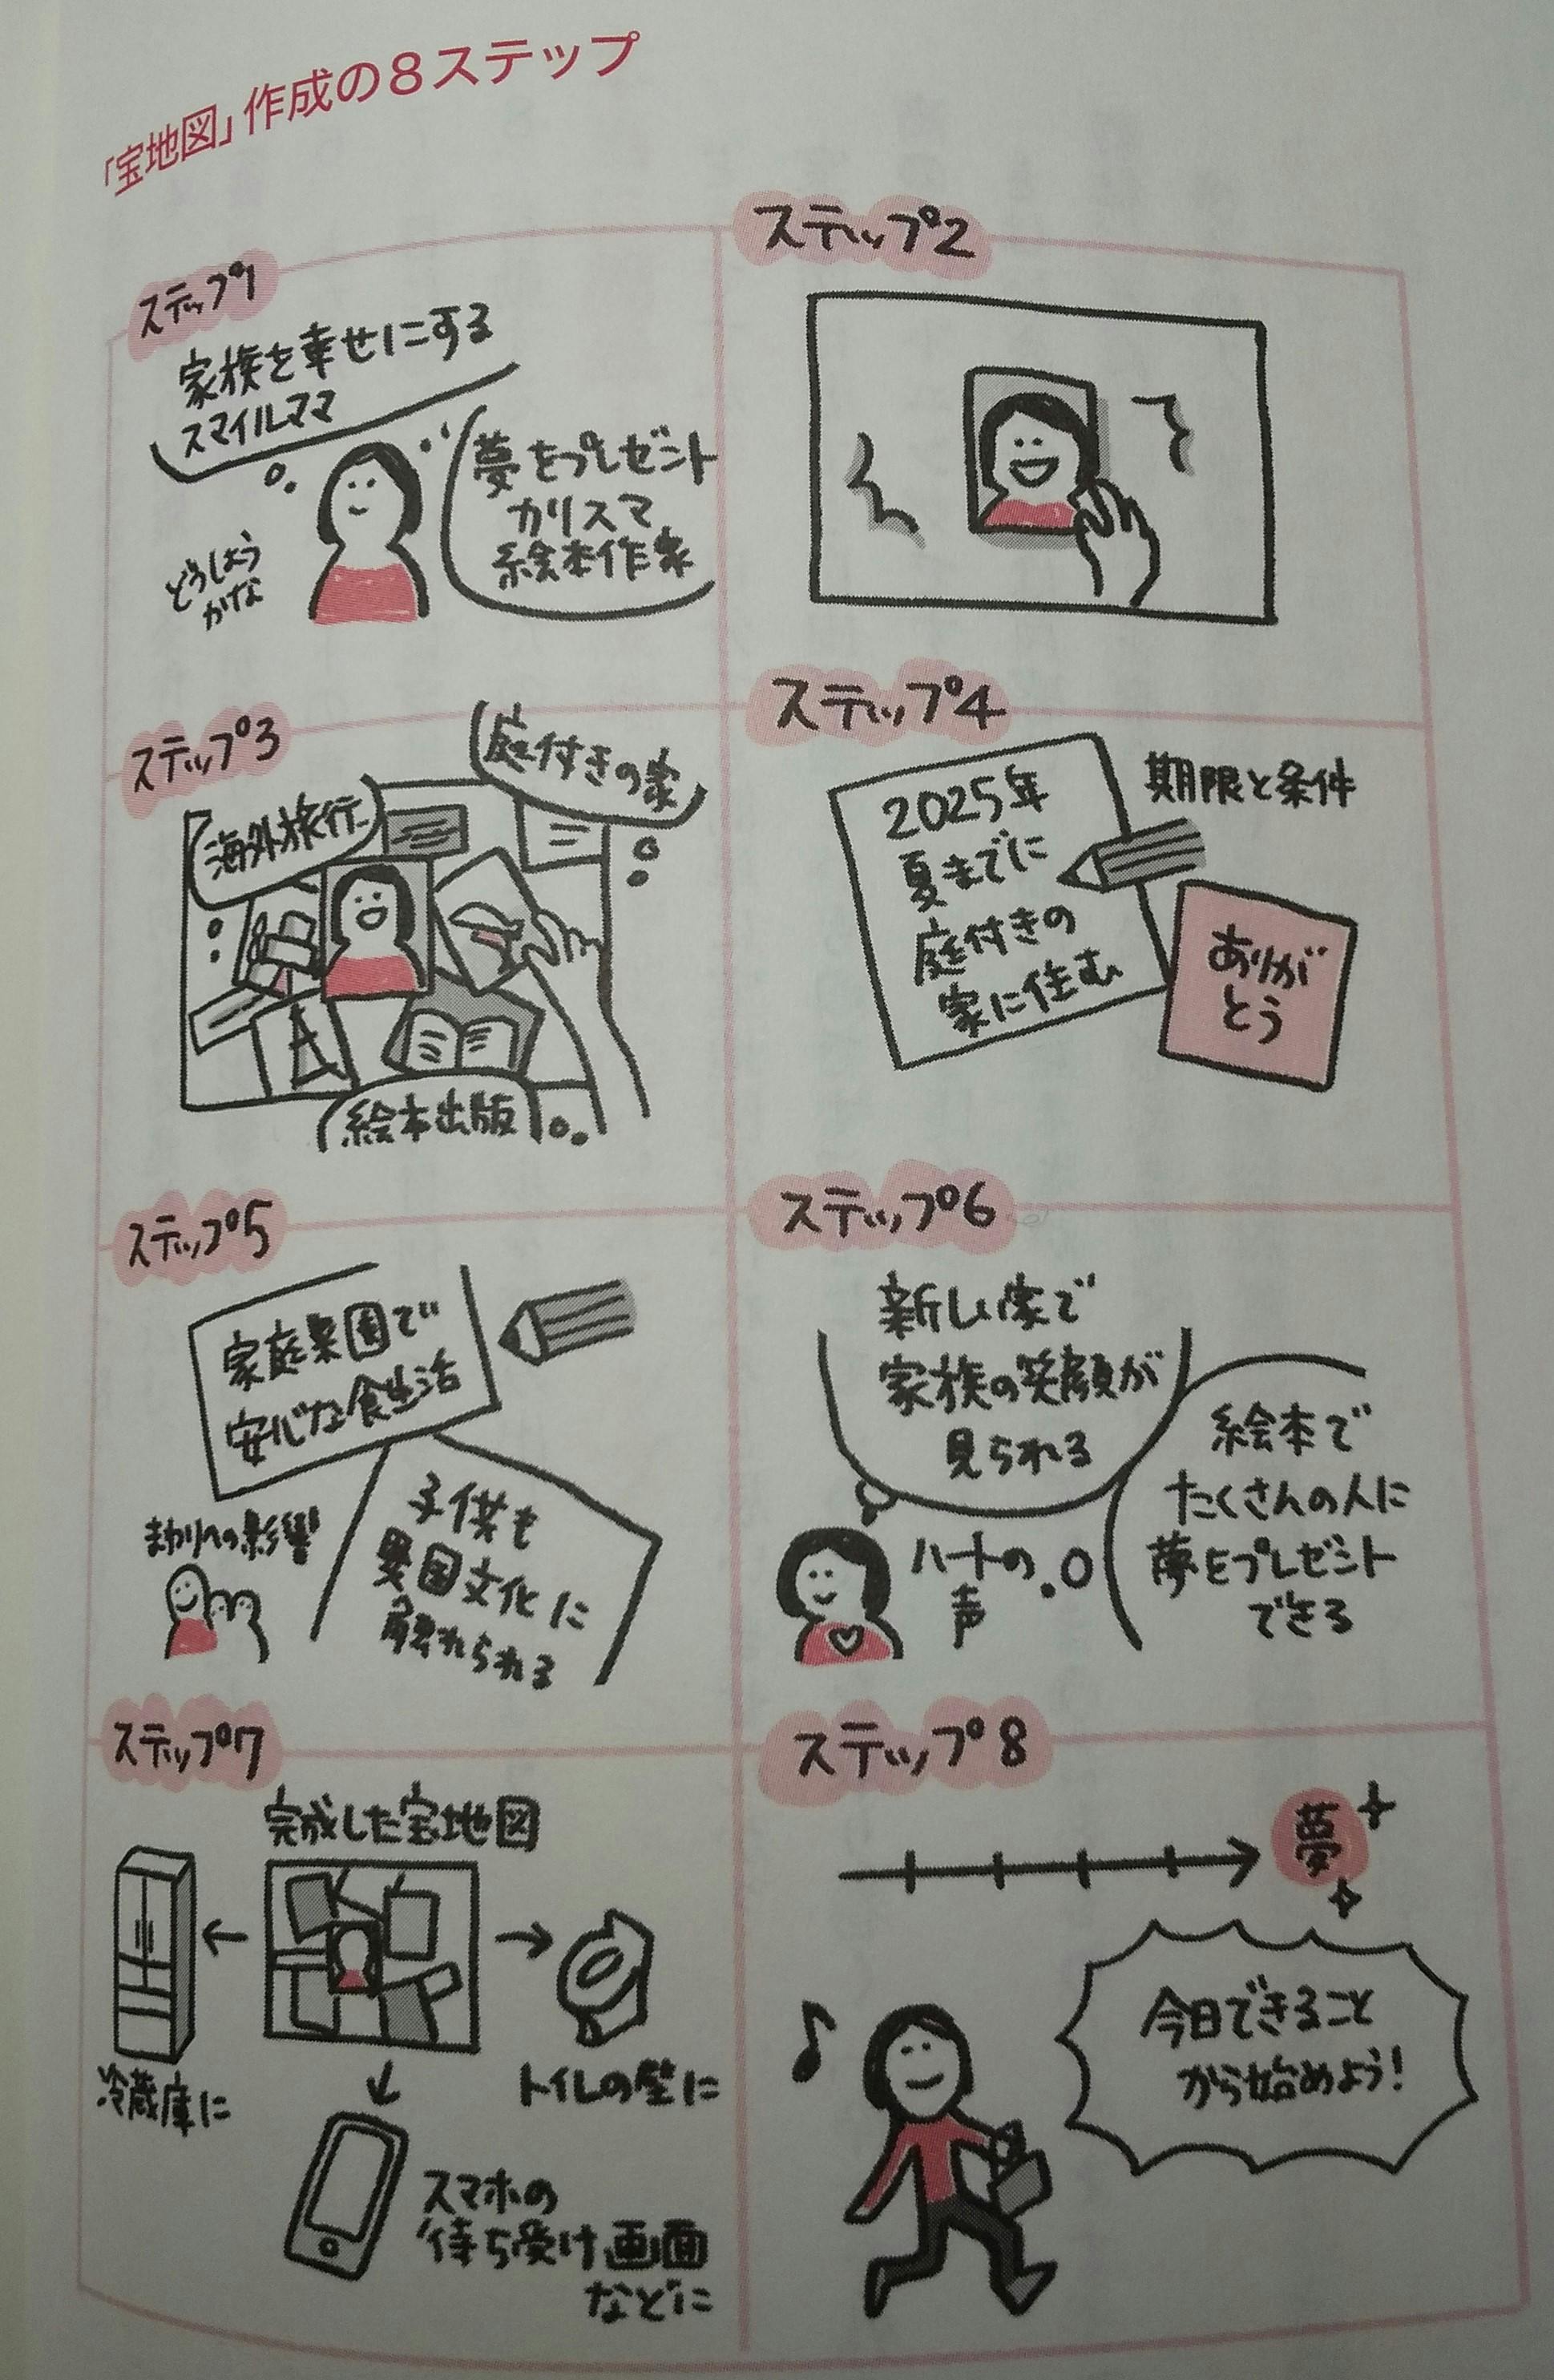 「宝地図」作成の8ステップ
ステップ1
家族を幸せにする
スマイルママ
夢をプレゼント
カリスマ
絵本作家
どうしよう
かな
ステップ2
ステップ3
庭付きの家
海外旅行
絵本出版
ステップ4
2025年
夏までに
庭付きの
家に住む
期限と条件
ありが
とう
ステップ5
家庭菜園で
安心な食生活
まわりへの影響
子供も
異国文化に
触れられる
ステップ6
新しい家で
家族の笑顔が
見られる
ハートの
声
絵本で
たくさんの人に
夢をプレゼント
できる
ステップ7
完成した宝地図
冷蔵庫に
トイレの壁に
スマホの
待ち受け画面
などに
ステップ8
夢
今日できること
から始めよう!